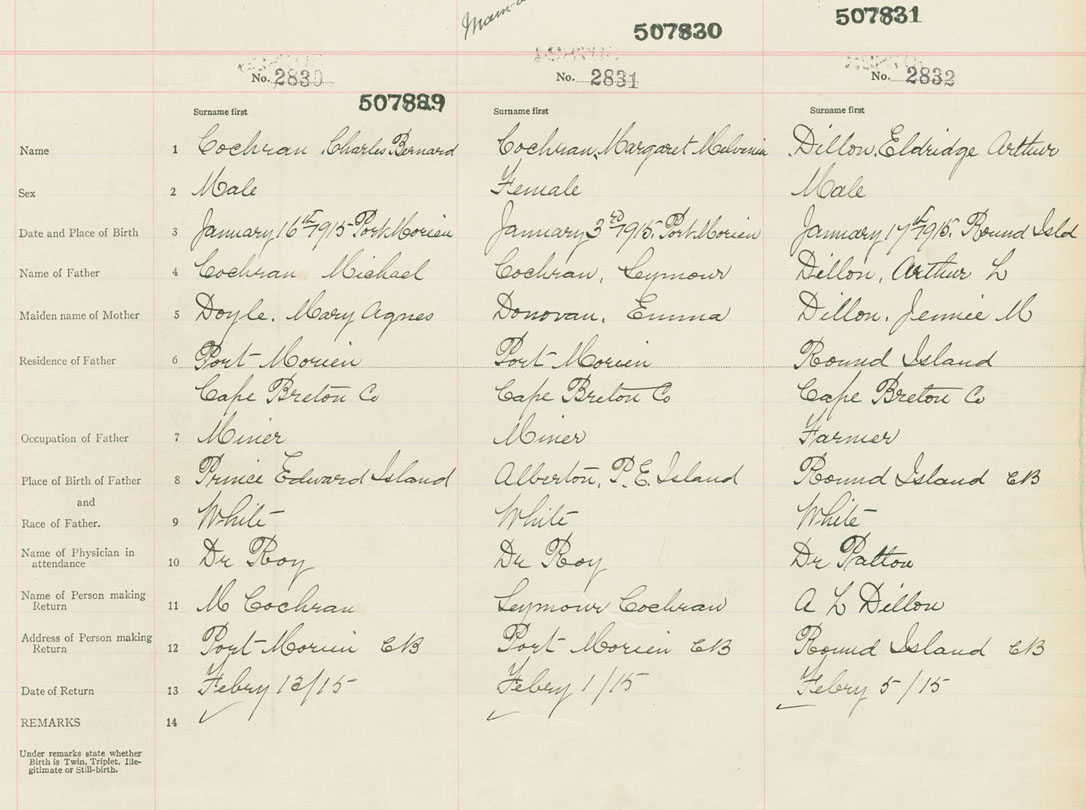 507830
507831
No. 2830
No. 2831
No. 2832
507829
Surname first
Surname first
Surname first
Name 1 Cochran Charles Bernard Cochran, Margaret Melvenia Dillon, Eldridge Arthur
Sex 2 Male Female Male
Date and Place of Birth 3 January 16th 1915 Port Morien January 3rd 1915. Port Morien January 17th 1915. Round Isld
Name of Father 4 Cochran Michael Cochran, Seymour Dillon, Arthur L
Maiden name of Mother 5 Doyle, Mary Agnes Donovan, Emma Dillon, Jennie M
Residence of Father 6 Port Morien Port Morien Round Island
Cape Breton Co Cape Breton Co Cape Breton Co
Occupation of Father 7 Miner Miner Farmer
Place of Birth of Father 8 Prince Edward Island Alberton, P.E. Island Round Island CB
and
Race of Father. 9 White White White
Name of Physician in
attendance 10 Dr Roy Dr Roy Dr Patton
Name of Person making
Return 11 M Cochran Seymour Cochran A L Dillon
Address of Person making
Return 12 Port Morien CB Port Morien CB Round Island CB
Date of Return 13 Febry 12/15 Febry 1/15 Febry 5/15
REMARKS 14
Under remarks state whether
Birth is Twin, Triplet, Ille-
gitimate or Still-birth.